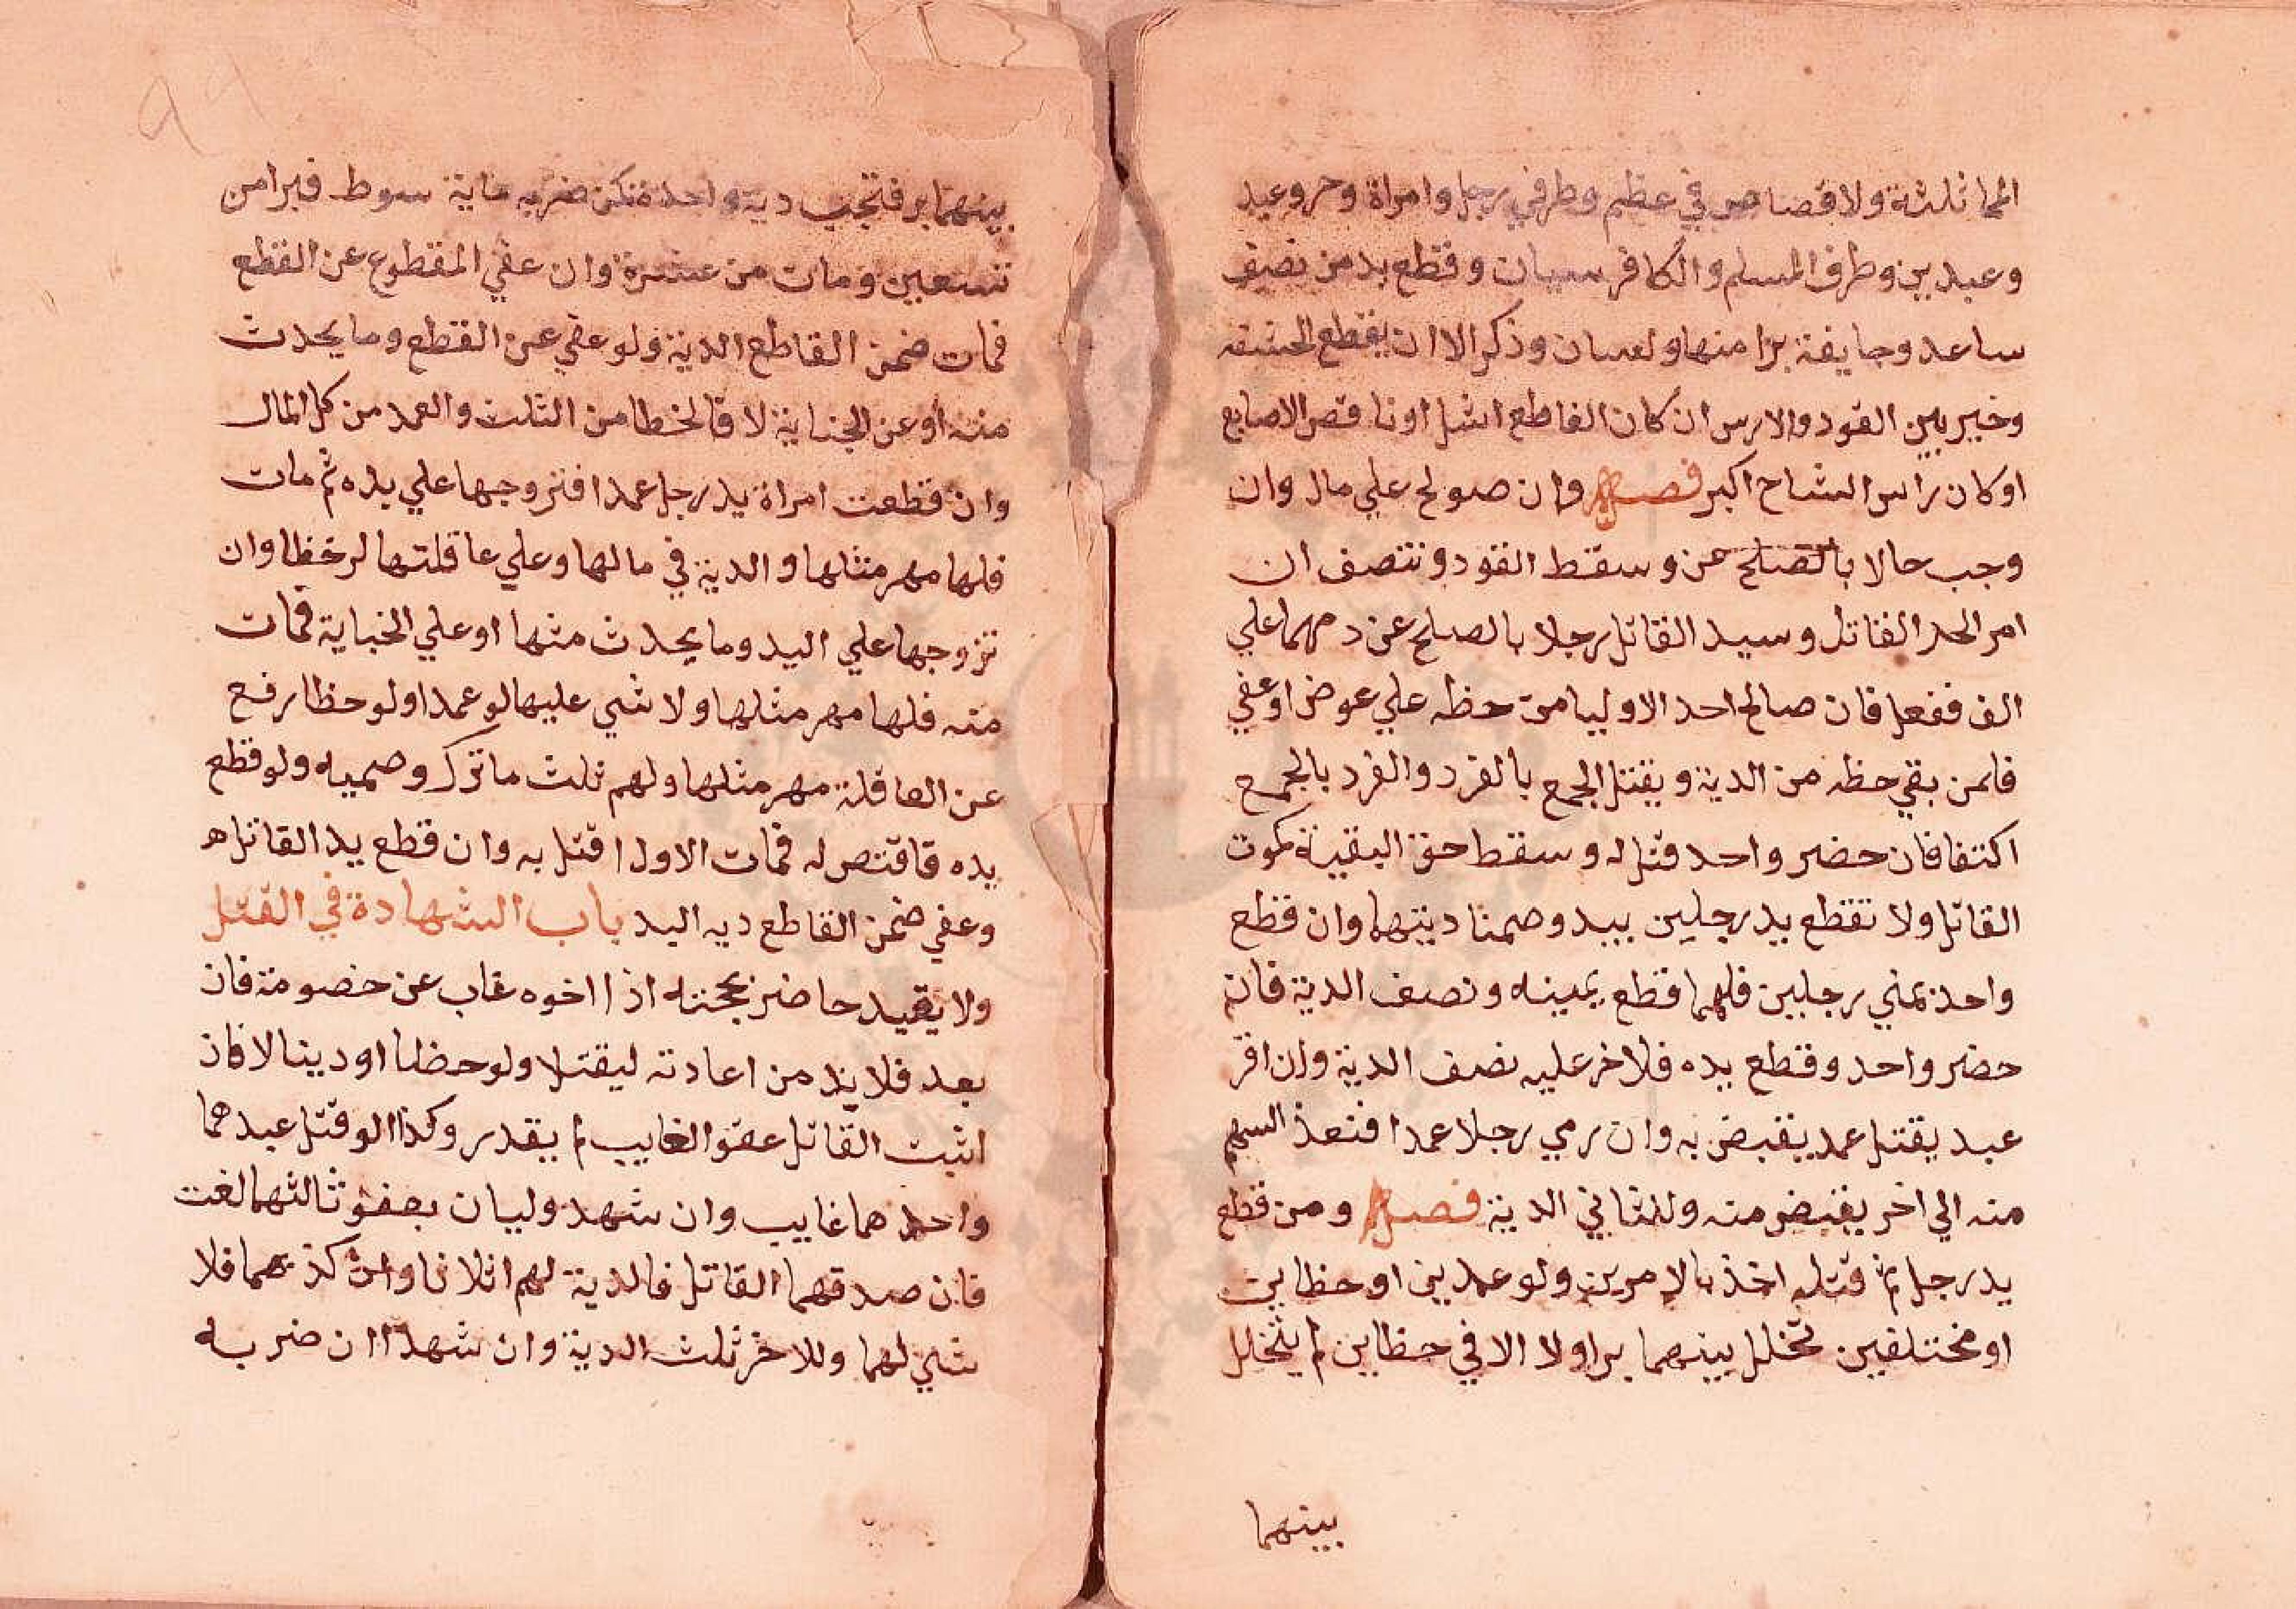 المماثلثة ولا قصاص في عظم وطرفي رجل وامراة وحر وعبد
وعبدين وطرف المسلم والكافر سيان وقطع يد من نصف
ساعد وجايفة برا منها ولسان وذكر الا ان يقطع الحشفه
وخير بين القود والارس ان كان القاطع اشل او ناقص الاصابع
او كان راس الشاح اكبر فصل وان صولح علي مال وان
وجب حالا بالصلح عن وسقط القود وتنصف ان
امر الحد القاتل وسيد القاتل رجلا بالصلح عن دمهما علي
الف ففعل فان صالح احد الاوليا من حظه علي عوض او عفي
فلمن بقي حظه من الدية ويقتل الجمع بالفرد والفرد بالجمع
اكتفا فان حضر واحد قتل له وسقط حق البقية كموت
القاتل ولا تقطع يد رجلين بيد وصمنا ديتهما وان قطع
واحد يمني رجلين فلهما قطع يمينه ونصف الدية فان
حضر واحد وقطع يده فلاخر عليه نصف الدية وان اقر
عبد يقتل عمد يقبض به وان رمي رجلا عمدا فنعذ السهم
منه الي اخر يقبض منه وللثاني الدية فصل ومن قطع
يد رجل ثم قتله اخذ بالامرين ولو عمدين او حظاين
او مختلفين تخلل بينهما برا ولا الا في حظاين لم يتخلل
بينهما
بينهما بر فتجب دية واحدة كمن ضربه ماية سوط فبرا من
تسعين ومات من عشرة وان عفي المقطوع عن القطع
فمات ضمن القاطع الدية ولو عفي عن القطع وما يحدث
منه او عن الجناية لا فالخطا من الثلث والعمد من كل المال
وان قطعت امراة يد رجل عمدا فتزوجها علي يده ثم مات
فلها مهر مثلها والدية في مالها وعلي عاقلتها لو خظا وان
تزوجها علي اليد وما يحدث منها او علي الخباية فمات
منه فلها مهر مثلها ولا شي عليها لو عمدا ولو حظا رفع
عن العاقلة مهر مثلها ولهم ثلث ما ترك وصميه ولو قطع
يده فاقتص له فمات الاول اقتل به وان قطع يد القاتل ه
وعفي ضمن القاطع ديه اليد باب الشهادة في القتل
ولا يقيد حاضر بحجته اذا اخوه غاب عن خصومة فان
بعد فلا بد من اعادته ليقتلا ولو حظا او دينا لا فان
اثبت القاتل عفو الغايب لم يقدر وكذا لو قتل عبدهما
واحدهما غايب وان شهد وليان بعفو ثالثهما لغت
فان صدقهما القاتل فالدية لهم اثلاثا وان كذبهما فلا
شي لهما وللاخر ثلث الدية وان شهدا ان ضربه